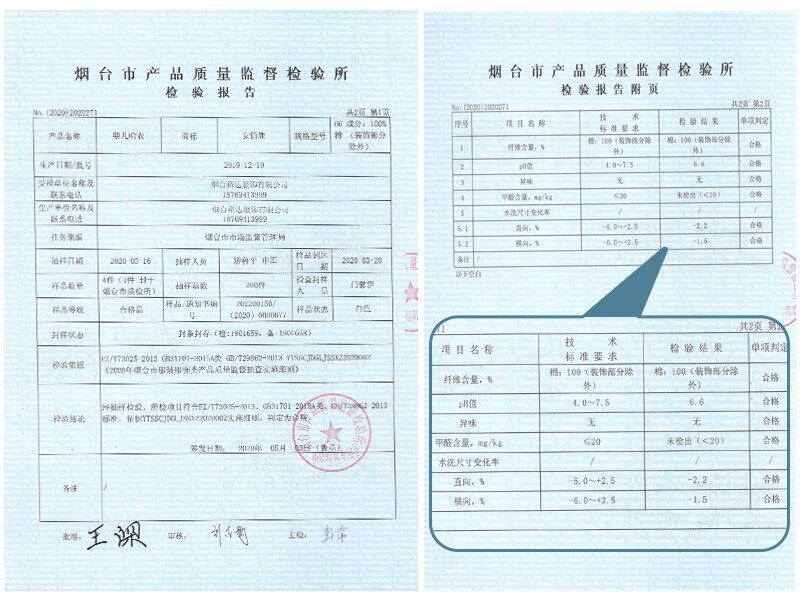 烟台市产品质量监督检验所
检 验 报 告
No.(2020)2020271 共2页 第1页
产品名称 婴儿哈衣 商标 安佰康 规格型号 66 成分：100%棉（装饰部分除外）
生产日期/批号 2019-12-19
受检单位名称及联系电话 烟台裕达服饰有限公司 18769413999
生产单位名称及联系电话 烟台裕达服饰有限公司 18769413999
任务来源 烟台市市场监督管理局
抽样日期 2020-03-16 抽样人员 样品到达日期 2020-03-20
样品数量 4件（1件 封于烟台市质检所） 抽样基数 200件 检查封样人员
样品等级 合格品 样品/通知书编号 202200150/（2020）0000077 样品状态 白色
封样状态 封条封存（检:1901659，备:1901658）
检验依据 FZ/T73025-2013 GB31701-2015A类 GB/T29862-2013 YTSSCJDGLJSSXZ2020002
《2020年烟台市服装服饰类产品质量监督抽查实施细则》
检验结论 经抽样检验，所检项目符合FZ/T73025-2013、GB31701-2015A类、GB/T29862-2013
标准，依据YTSSCJDGLJSSXZ2020002实施细则，判定为合格。
签发日期： 2020年 05月 03日（盖章）
备注 /
批准： 审核： 主检：
烟台市产品质量监督检验所
检验报告附页
No:(2020)2020271 共2页 第2页
序号 项目名称 技 术 标准要求 检验结果 单项判定
1 纤维含量，% 棉：100（装饰部分除外） 棉：100（装饰部分除外） 合格
2 pH值 4.0～7.5 6.6 合格
3 异味 无 无 合格
4 甲醛含量，mg/kg ≤20 未检出（＜20） 合格
5 水洗尺寸变化率 / / /
5.1 直向，% -6.0～+2.5 -2.2 合格
5.2 横向，% -6.0～+2.5 -1.5 合格
备注 /
以下空白
共2页 第2
项目名称 技 术 标准要求 检验结果 单项判定
纤维含量，% 棉：100（装饰部分除外） 棉：100（装饰部分除外） 合格
pH值 4.0～7.5 6.6 合格
异味 无 无 合格
甲醛含量，mg/kg ≤20 未检出（＜20） 合格
水洗尺寸变化率 / / /
直向，% -6.0～+2.5 -2.2 合格
横向，% -6.0～+2.5 -1.5 合格